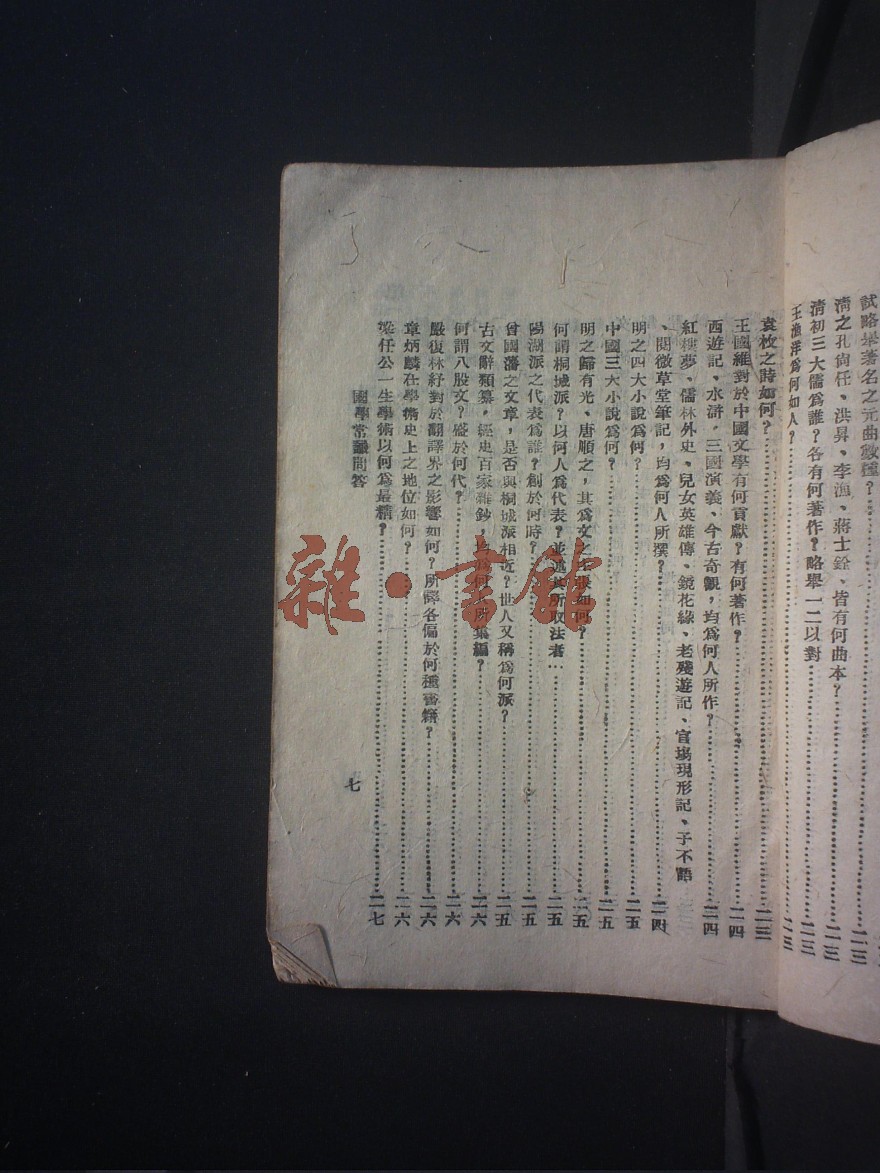 試略舉著名之元曲數種？
清之孔尚任、洪昇、李漁、蔣士銓、皆有何曲本？二三
清初三大儒爲誰？各有何著作？略舉一二以對二三
王漁洋爲何如人？二三
袁枚之時如何？二三
王國維對於中國文學有何貢獻？有何著作？二四
西遊記、水滸，三國演義、今古奇觀，均爲何人所作？二四
紅樓夢、儒林外史、兒女英雄傳、鏡花緣、老殘遊記、官塲現形記、子不語
、閱微草堂筆記，均爲何人所撰？二四
明之四大小說爲何？二五
中國三大小說爲何？二五
明之歸有光、唐順之，其爲文之主張如何？二五
何謂桐城派？以何人爲代表？並述其所取法者二五
陽湖派之代表爲誰？創於何時？二五
曾國藩之文章，是否與桐城派相近？世人又稱爲何派？二五
古文辭類纂，經史百家雜鈔，均爲何人所纂編？二六
何謂八股文？盛於何代？二六
嚴復林紓對於翻譯界之影響如何？所譯各偏於何種書籍？二六
章炳麟在學術史上之地位如何？二六
梁任公一生學術以何爲最精？二七
國學常識問答
七
雜·書館